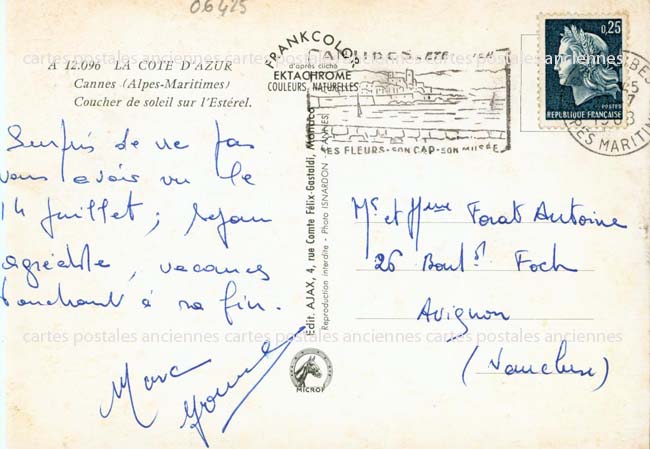 06425
A 12.096 LA COTE D'AZUR
Cannes (Alpes-Maritimes)
Coucher de soleil sur l'Estérel.
Surpris de ne pas
vous avoir vu le
14 Juillet; séjour
agréable, vacances
touchant à sa fin.
Marc
Yvonne
FRANKCOLOR
d'après cliché
EKTACHROME
COULEURS NATURELLES
Edit. AJAX, 4, rue Comte Félix-Gastaldi, Monaco
Reproduction interdite - Photo ISNARDON - CANNES
MICROF
SES FLEURS-SON CAP-SON MUSÉE
0,25
POSTES
REPUBLIQUE FRANÇAISE
BES
45
1968
PES MARITIM
Mr et Mme Forat Antoine
26 Bould Foch
Avignon
(Vaucluse)
cartes postales anciennes cartes postales anciennes cartes postales anciennes
cartes postales anciennes cartes postales anciennes cartes postales anciennes